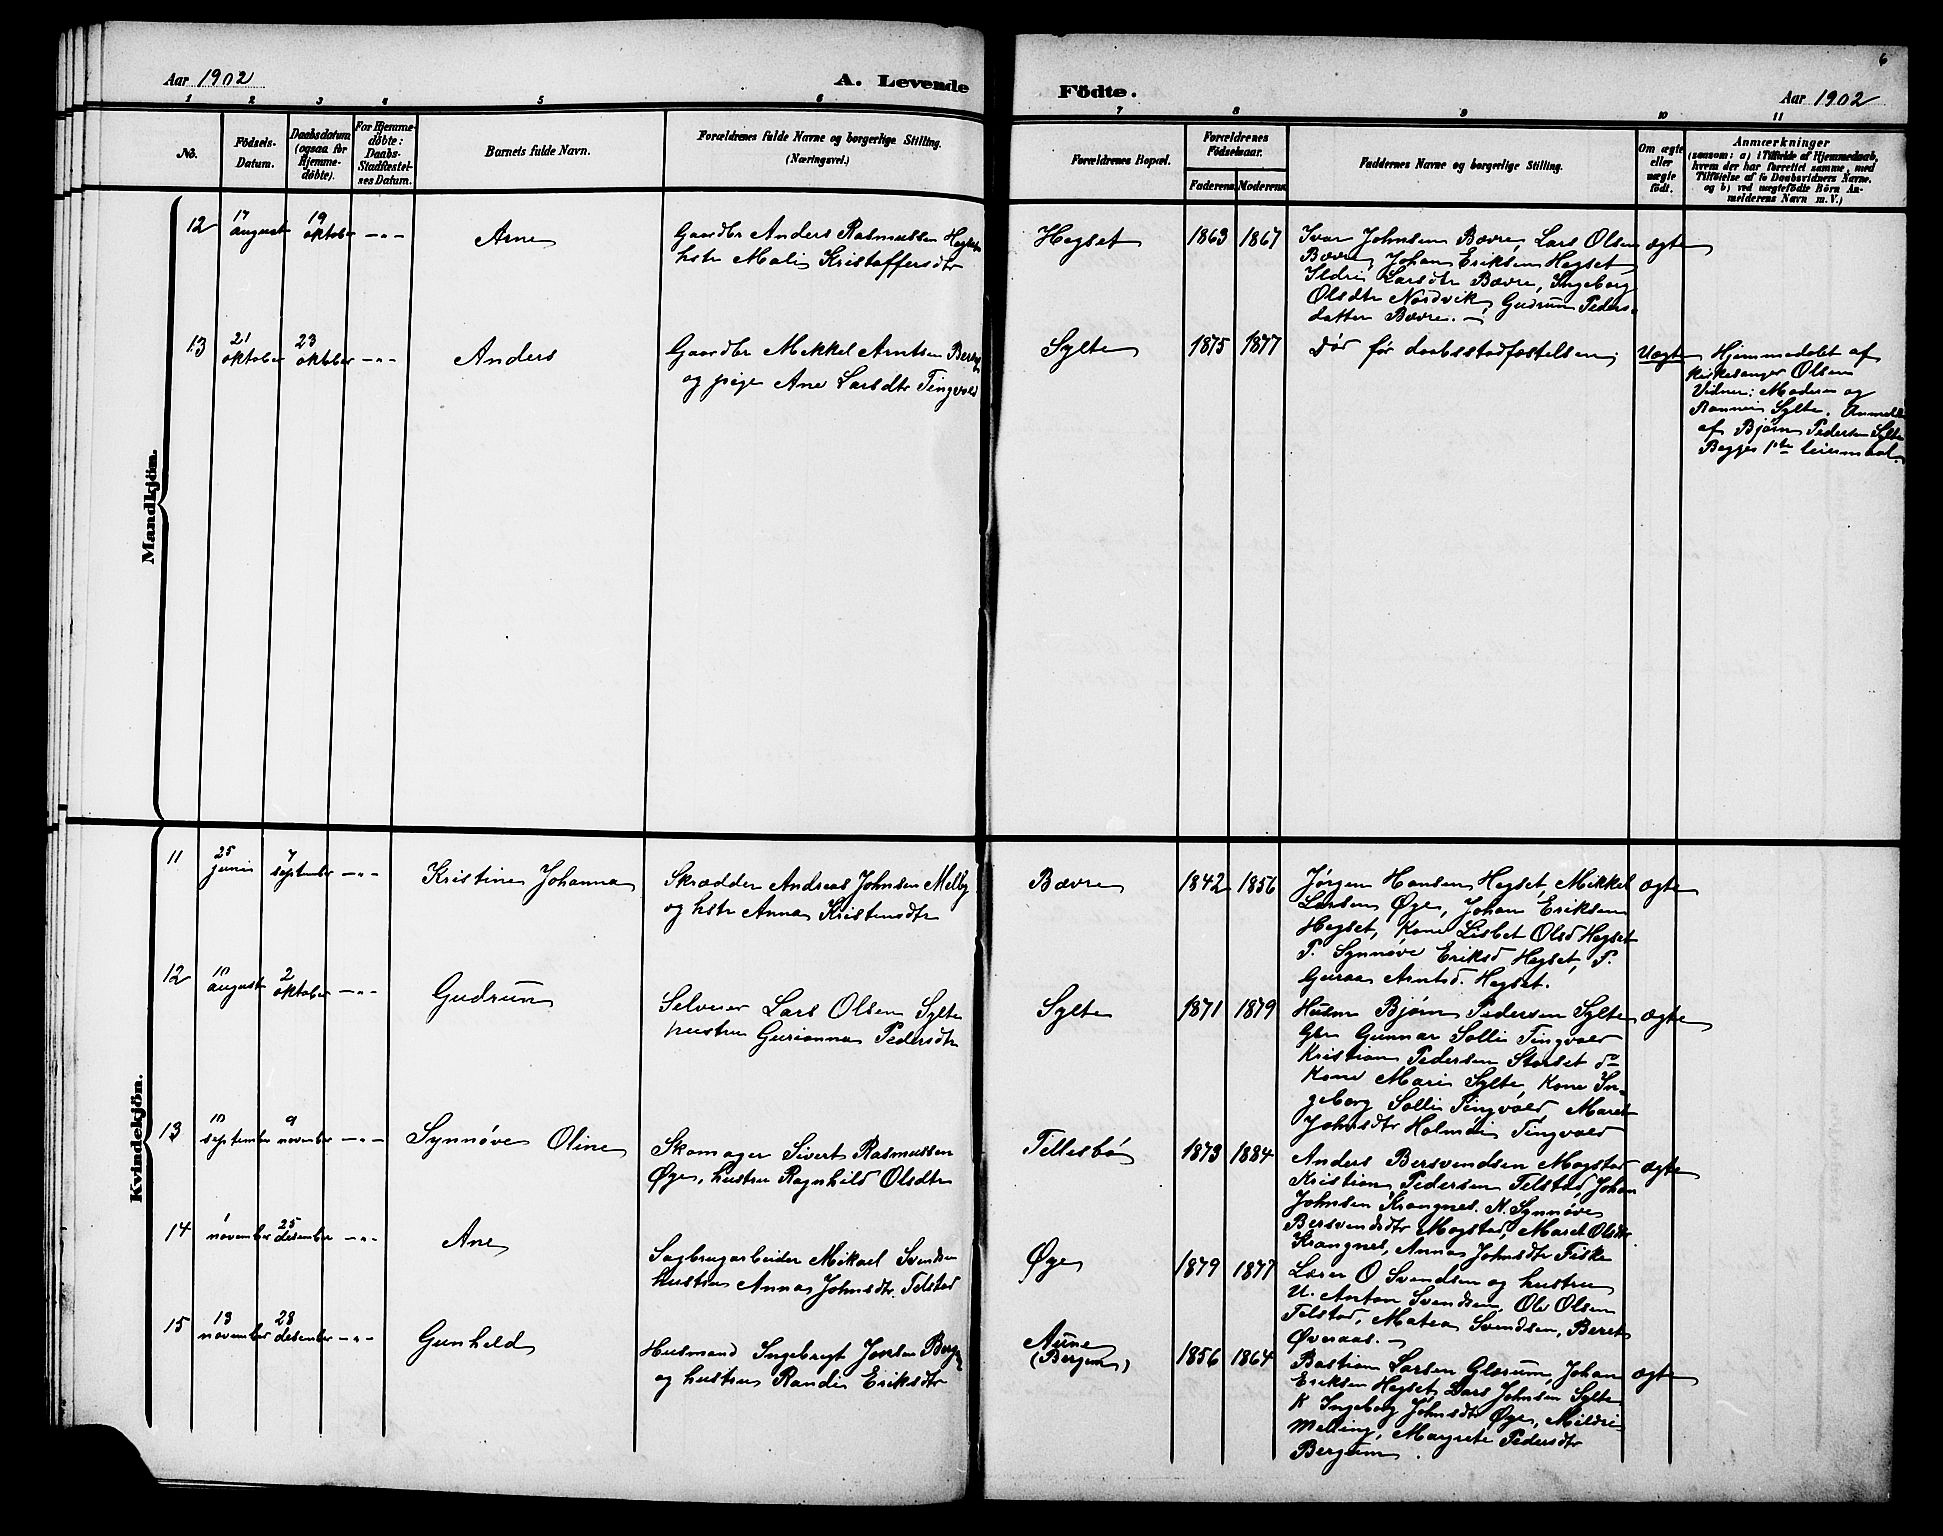 6
Aar 1902
A. Levende
Födte.
Aar 1902
1 2 3 4 5 6 7 8 9 10 11
No.
Födsels-
Datum.
Daabsdatum
(ogsaa for
Hjemme-
døbte).
For Hjemme-
døbte:
Daabs-
Stadfæstel-
ses Datum.
Barnets fulde Navn.
Forældrenes fulde Navne og borgerlige Stilling.
(Næringsvei.)
Forældrenes Bopæl.
Forældrenes
Födselsaar.
Faderens
Moderens
Faddernes Navne og borgerlige Stilling.
Om ægte
eller
uægte
født.
Anmærkninger
(saasom: a) i Tilfælde af Hjemmedaab,
hvem der har forrettet samme, med
Tilføielse af to Daabsvidners Navne,
og b) ved uægtefødte Börn An-
melderens Navn m. V.)
Mandkjön.
12
17
august
19
oktober
-"-
Arne
Gaardbr Anders Rasmussen Hegset
hstr Mali Kristoffersdtr
Hegset
1863
1867
Ivar Johnsen Bævre, Lars Olsen
Bævre, Johan Eriksen Hegset,
Ildri Larsdtr Bævre, Ingeborg
Olsdtr Nordvik, Gudrun Peders-
datter Bævre. -
ægte
13
21
oktober
23
oktober
-"-
Anders
Gaardbr Mikkel Arntsen
og pige Ane Larsdtr Tingvold
Sylte
1875
1877
Dør før daabsstadfæstelsen.
Uægte
Hjemmedøbt af
kirkesanger Olsen
Vidner: Moderen og
Sylte. Anmeldt
af Bjørn Pedersen Sylte
Begges 1ste leiermaal.
Kvindekjön.
11
25
juni
7
september
-"-
Kristine Johanna
Skrædder Andreas Johnsen Melby
og hstr Anna Kristensdtr
Bævre
1842
1856
Jørgen Hansen Hegset, Mikkel
Larsen Øye, Johan Eriksen
Hegset, Kone Lisbet Olsd Hegset
P. Synnøve Eriksd Hegset, P.
Guraa Arntsd. Hegset.
ægte
12
10
august
2
oktober
-"-
Gudrun
Selveier Lars Olsen Sylte
hustru Gurianna Pedersdtr
Sylte
1871
1879
Husm Bjørn Pedersen Sylte
Gbr Gunnar Solli Tingvold
Kristian Pedersen Storset do
Kone Mari Sylte, Kone In-
geborg Solli Tingvold, Maret
Johnsdtr Holmøi Tingvold
ægte
13
10
september
9
november
-"-
Synnøve Oline
Skomager Sivert Rasmussen
Øye, hustru Ragnhild Olsdtr
Tellesbø
1873
1884
Anders Bersvendsen Mogstad
Kristian Pedersen Telstad, Johan
Johnsen Krangnes. K. Synnøve
Bersvendsdtr Mogstad, Maret Olsdtr
Krangnes, Anna Johnsdtr Fiske
ægte
14
1
november
25
desember
-"-
Ane
Sagbrugarbeider Mikael Svendsen
hustru Anna Johnsdtr. Telstad
Øye
1879
1877
Lærer O Svendsen og hustru
U. Anton Svendsen, Ole Olsen
Telstad, Matea Svendsen, Beret
Øveraas. -
15
13
november
28
desember
-"-
Gunhild
Husmand Ingebrigt Joersen
og hustru Randi Eriksdtr
Aune
(Bergem)
1856
1864
Bastian Larsen Glærum, Johan
Eriksen Hegset, Lars Johnsen Sylte
K Ingeborg Johnsdtr Øye, Mildri
Melling, Margrete Pedersdtr
Bergem.
ægte